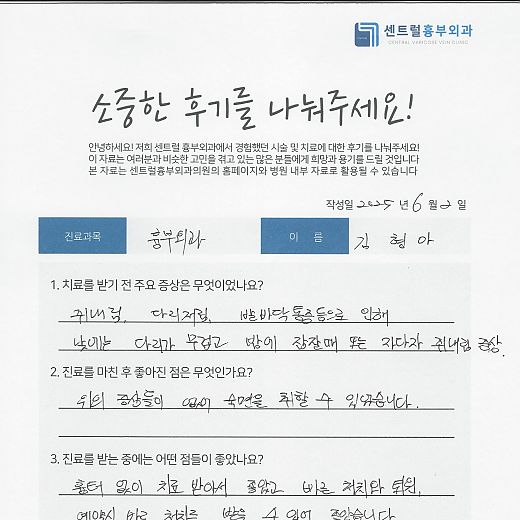 센트럴흉부외과
CENTRAL VARICOSE VEIN CLINIC
소중한 후기를 나눠주세요!
안녕하세요! 저희 센트럴 흉부외과에서 경험했던 시술 및 치료에 대한 후기를 나눠주세요!
이 자료는 여러분과 비슷한 고민을 겪고 있는 많은 분들에게 희망과 용기를 드릴 것입니다
본 자료는 센트럴흉부외과의원의 홈페이지와 병원 내부 자료로 활용될 수 있습니다
작성일 2025 년 6 월 2 일
진료과목 흉부외과 이 름 김 형 아
1. 치료를 받기 전 주요 증상은 무엇이었나요?
쥐내림, 다리저림, 발바닥통증등으로 인해
낮에는 다리가 무겁고 밤에 잠잘때 또는 자다가 쥐내림 증상.
2. 진료를 마친 후 좋아진 점은 무엇인가요?
위의 증상들이 없이 숙면을 취할 수 있었습니다.
3. 진료를 받는 중에는 어떤 점들이 좋았나요?
흉터 없이 치료 받아서 좋았고 빠른 처치와 퇴원,
예약시 바로 처치를 받을 수 있어 좋았습니다